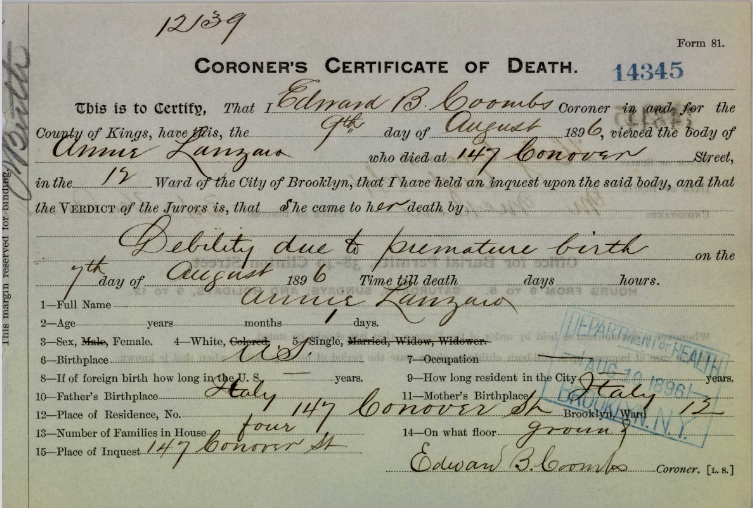 12139
Form 81.
CORONER'S CERTIFICATE OF DEATH.
14345
This is to Certify, That I Edward B. Coombs Coroner in and for the
County of Kings, have this, the 9th day of August 1896, viewed the body of
Annie Lanzaro who died at 147 Conover Street,
in the 12 Ward of the City of Brooklyn, that I have held an inquest upon the said body, and that
the VERDICT of the Jurors is, that She came to her death by
Debility due to premature birth on the
7th day of August 1896 Time till death days hours.
1—Full Name Annie Lanzaro
2—Age years months 1 days.
3—Sex, Male, Female. 4—White, Colored. 5—Single, Married, Widow, Widower.
6—Birthplace U.S. 7—Occupation —
8—If of foreign birth how long in the U. S. — years. 9—How long resident in the City years.
10—Father's Birthplace Italy 11—Mother's Birthplace Italy
12—Place of Residence, No. 147 Conover St Brooklyn, Ward 12
13—Number of Families in House four 14—On what floor ground
15—Place of Inquest 147 Conover St
Edward B. Coombs Coroner. [L. S.]
DEPARTMENT OF HEALTH
AUG 10 1896
BROOKLYN, N.Y.
This margin reserved for binding.
Birth